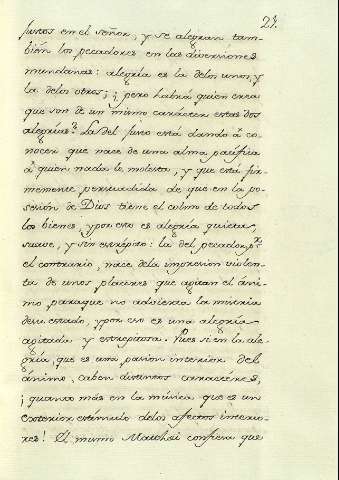 27.
Justos en el señor, y se alegran tam-
bién los pecadores en las diversiones
mundanas: alegría es la delos unos, y
la delos otros; ¿pero habrá quien crea
que son de un mismo carácter estas dos
alegrías? La del justo está dando á co-
nocer que nace de una alma pacífica
á quien nada la molesta, y que está fir-
memente persuadida de que en la po-
sesión de Dios tiene el colmo de todos
los bienes, y por esto es alegría quieta,
suave, y sin estrépito: la del pecador, pr.
el contrario, nace dela impresion violen-
ta de unos placeres que agitan el áni-
mo para que no advierta la miseria
desu estado, y por eso es una alegría
agitada y estrepitosa. Pues si en la ale-
gría, que es una pasion interior del
ánimo, caben distintos caractéres,
¡quanto más en la música que es un
exterior estímulo delos afectos interio-
res! El mismo Matthei confiesa que